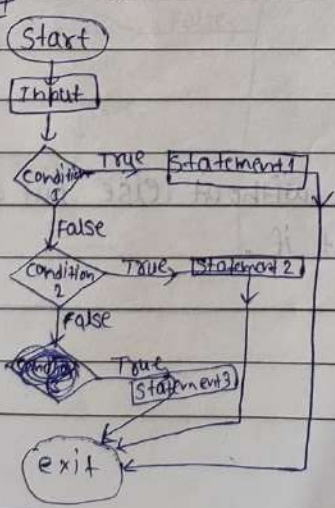 Start
Input
Condition 1
True
Statement 1
False
Condition 2
True
Statement 2
False
True
Statement3
exit